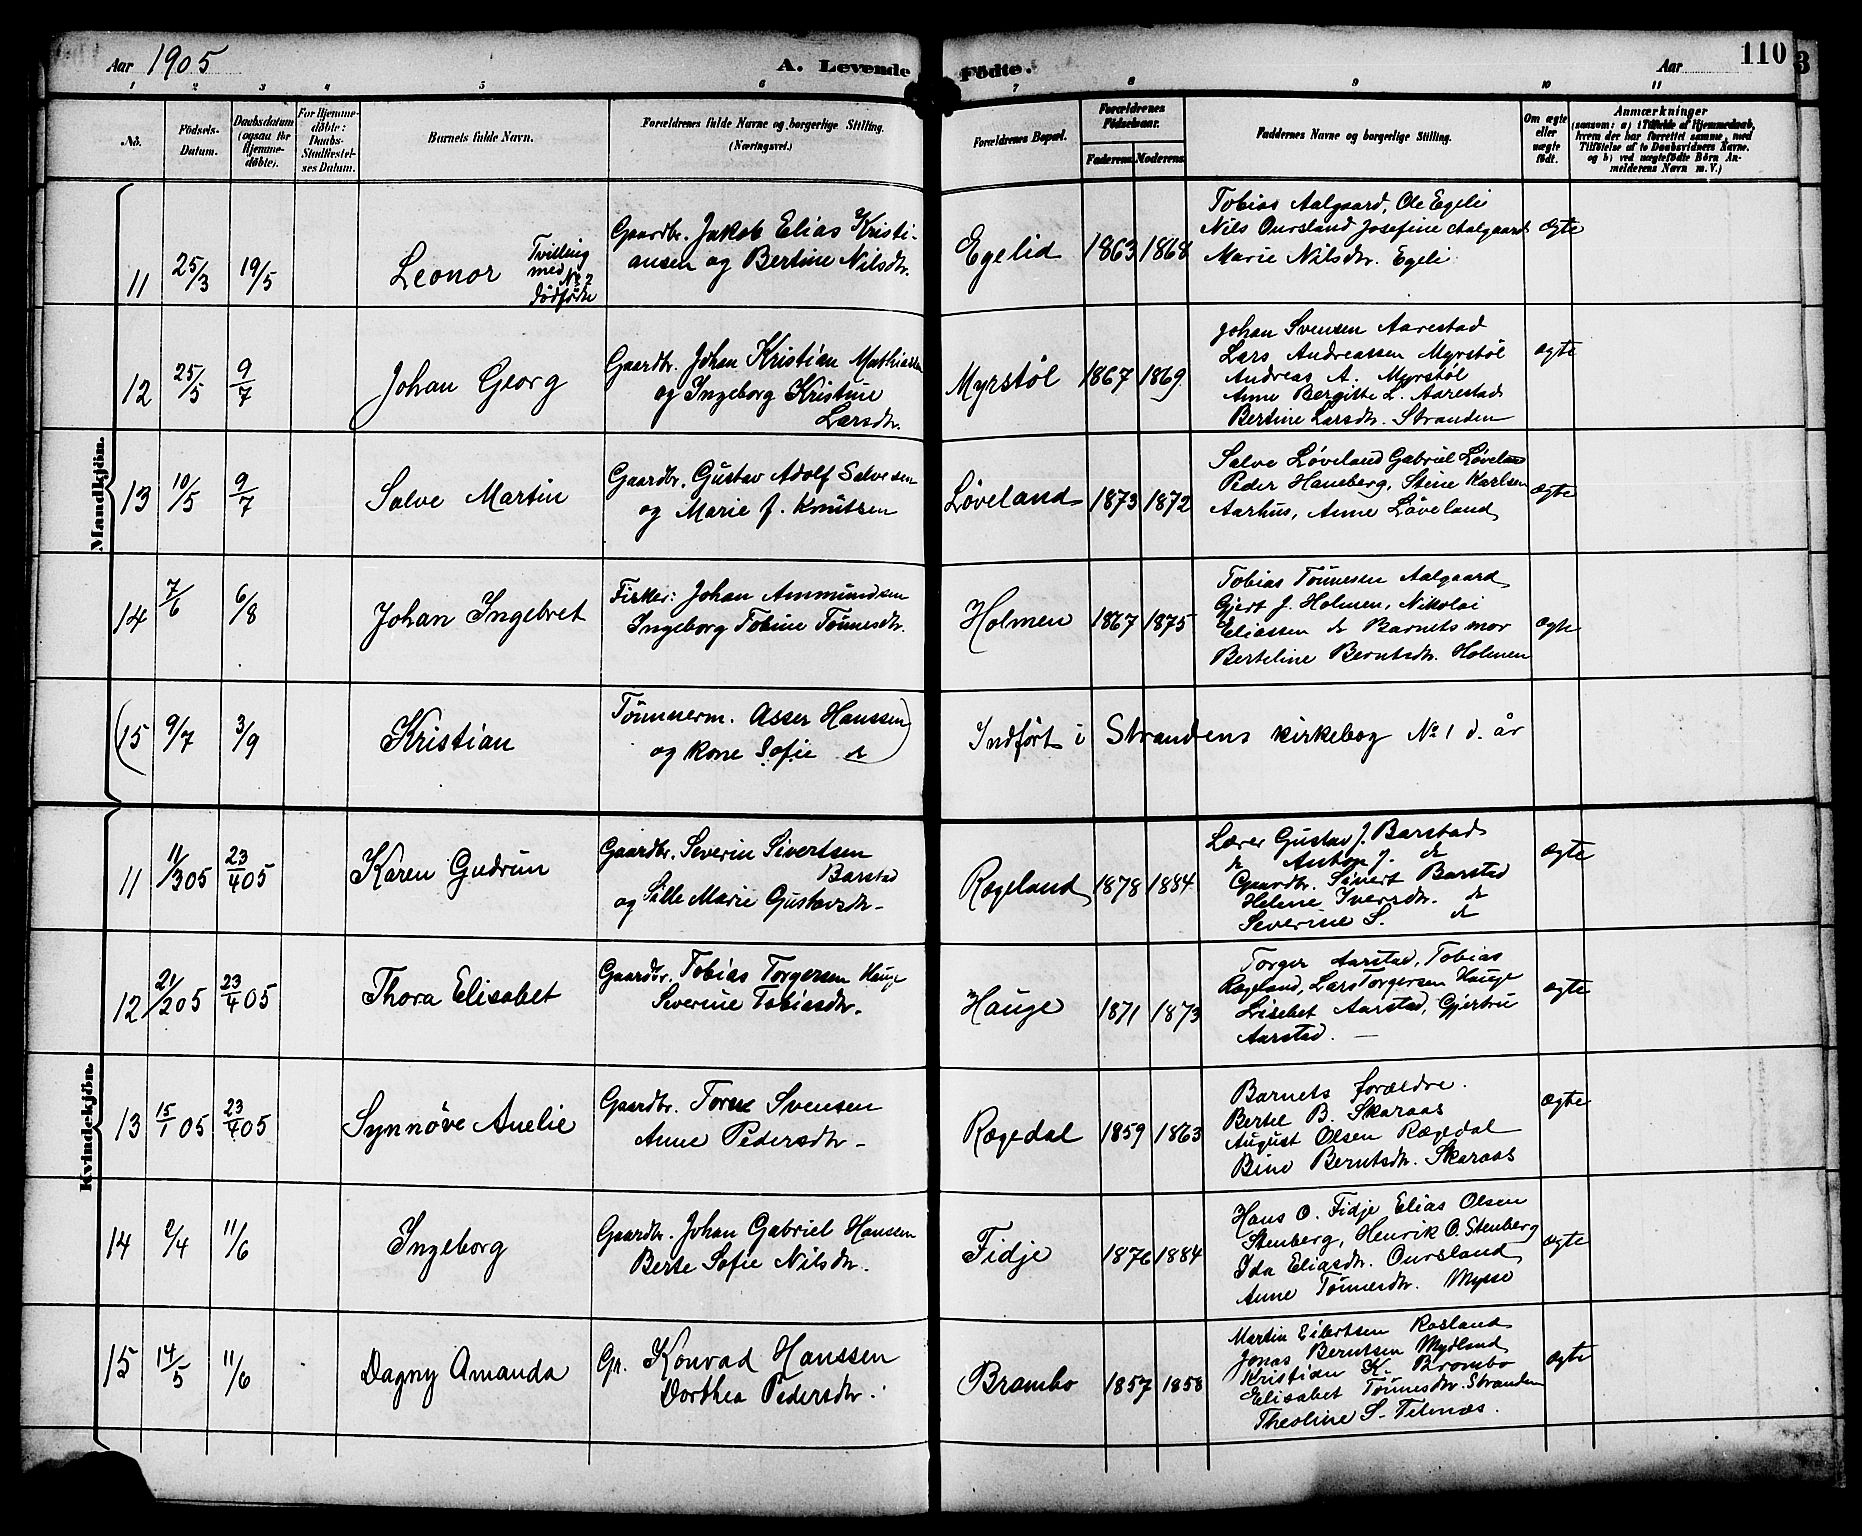 Aar 1905
A. Levende Födte.
Aar
110
3
1 2 3 4 5 6 7 8 9 10 11
No.
Födsels-
Datum.
Daabsdatum
(ogsaa for
Hjemme-
døbte).
For Hjemme-
døbte:
Daabs-
Stadfæstel-
ses Datum.
Barnets fulde Navn.
Forældrenes fulde Navne og borgerlige Stilling.
(Næringsvei.)
Forældrenes Bopæl.
Forældrenes
Födselsaar.
Faderens. Moderens.
Faddernes Navne og borgerlige Stilling.
Om ægte
eller
uægte
födt.
Anmærkninger
(saasom: a) i Tilfælde af Hjemmedaab,
hvem der har forrettet samme, med
Tilföielse af to Daabsvidners Navne.
og b) ved uægtefödte Börn An-
melderens Navn m. V.)
Mandkjön.
11 25/3 19/5 Leonor
Tvilling
med
dødfødte
Gaardbr. Jakob Elias Kristi-
ansen og Bertine Nilsdtr.
Egelid 1863 1868
Tobias Aalgaard, Ole Egeli
Nils Oursland Josefine Aalgaard
Marie Nilsdtr. Egeli
ægte
12 25/5 9/7 Johan Georg
Gaardbr. Johan Kristian Mathiassen
og Ingeborg Kristine
Larsdtr.
Myrstøl 1867 1869
Johan Svensen Aarestad
Lars Andreassen Myrstøl
Andreas A. Myrstøl
Anne Bergitte L. Aarestad
Bertine Larsdtr. Stranden
ægte
13 10/5 9/7 Salve Martin
Gaardbr. Gustav Adolf Salvesen
og Marie J. Knutsen
Løveland 1873 1872
Salve Løveland Gabriel Løveland
Peder Hauaberg, Stine Karlsen
Aarhus, Anne Løveland
ægte
14 7/6 6/8 Johan Ingebret
Fisker: Johan Ammundsen
Ingeborg Tobine Tønnesdtr.
Holmen 1867 1875
Tobias Tønnesen Aalgaard
Gjert J. Holmen, Nikolai
Eliassen do Barnets mor
Berteline Berntsdtr. Holmen
ægte
(15 9/7 3/9 Kristian
Tømmerm. Asser Hanssen
og kone Sofie do)
Indført i Strandens kirkebog No 1 d. år
Kvindekjön.
11 11/3 05 23/4 05 Karen Gudrun
Gaardbr. Severin Sivertsen
Barstad
og Sille Marie Gustavsdtr.
Rægeland 1878 1884
Lærer Gustav J. Barstad
do Anton J. do
Gaardbr. Sivert Barstad
Helene Iversdtr. do
Severine S. do
ægte
12 21/2 05 23/4 05 Thora Elisabet
Gaardbr. Tobias Torgersen Hauge
Severine Tobiasdtr.
Hauge 1871 1873
Torger Aarstad, Tobias
Rægeland, Lars Torgersen Hauge
Lisebet Aarstad, Gjertru
Aarstad. —
ægte
13 15/1 05 23/4 05 Synnöve Anelie
Gaardbr. Svensen
Anne Pedersdtr. -
Rægedal 1859 1863
Barnets forældre.
Bertel B. Skaraas
August Olsen Rægedal
Bine Berntsdtr. Skaraas
ægte
14 2/4 11/6 Ingeborg
Gaardbr. Johan Gabriel Hanssen
Berte Sofie Nilsdtr.
Fidje 1876 1884
Hans O. Fidje Elias Olsen
Stenberg, Henrik O. Stenberg
Ida Eliasdtr. Oursland
Anne Tønnesdtr. Mysse
ægte
15 14/5 11/6 Dagny Amanda
Gr. Konrad Hanssen
Dorthea Pedersdtr.
Brambo 1857 1858
Martin Eilertsen Rosland
Jonas Berntsen Mydland
Kristian K. Brombo
Elisabet Tønnesdtr. Stranden
Theoline S. Titlnæs.
ægte